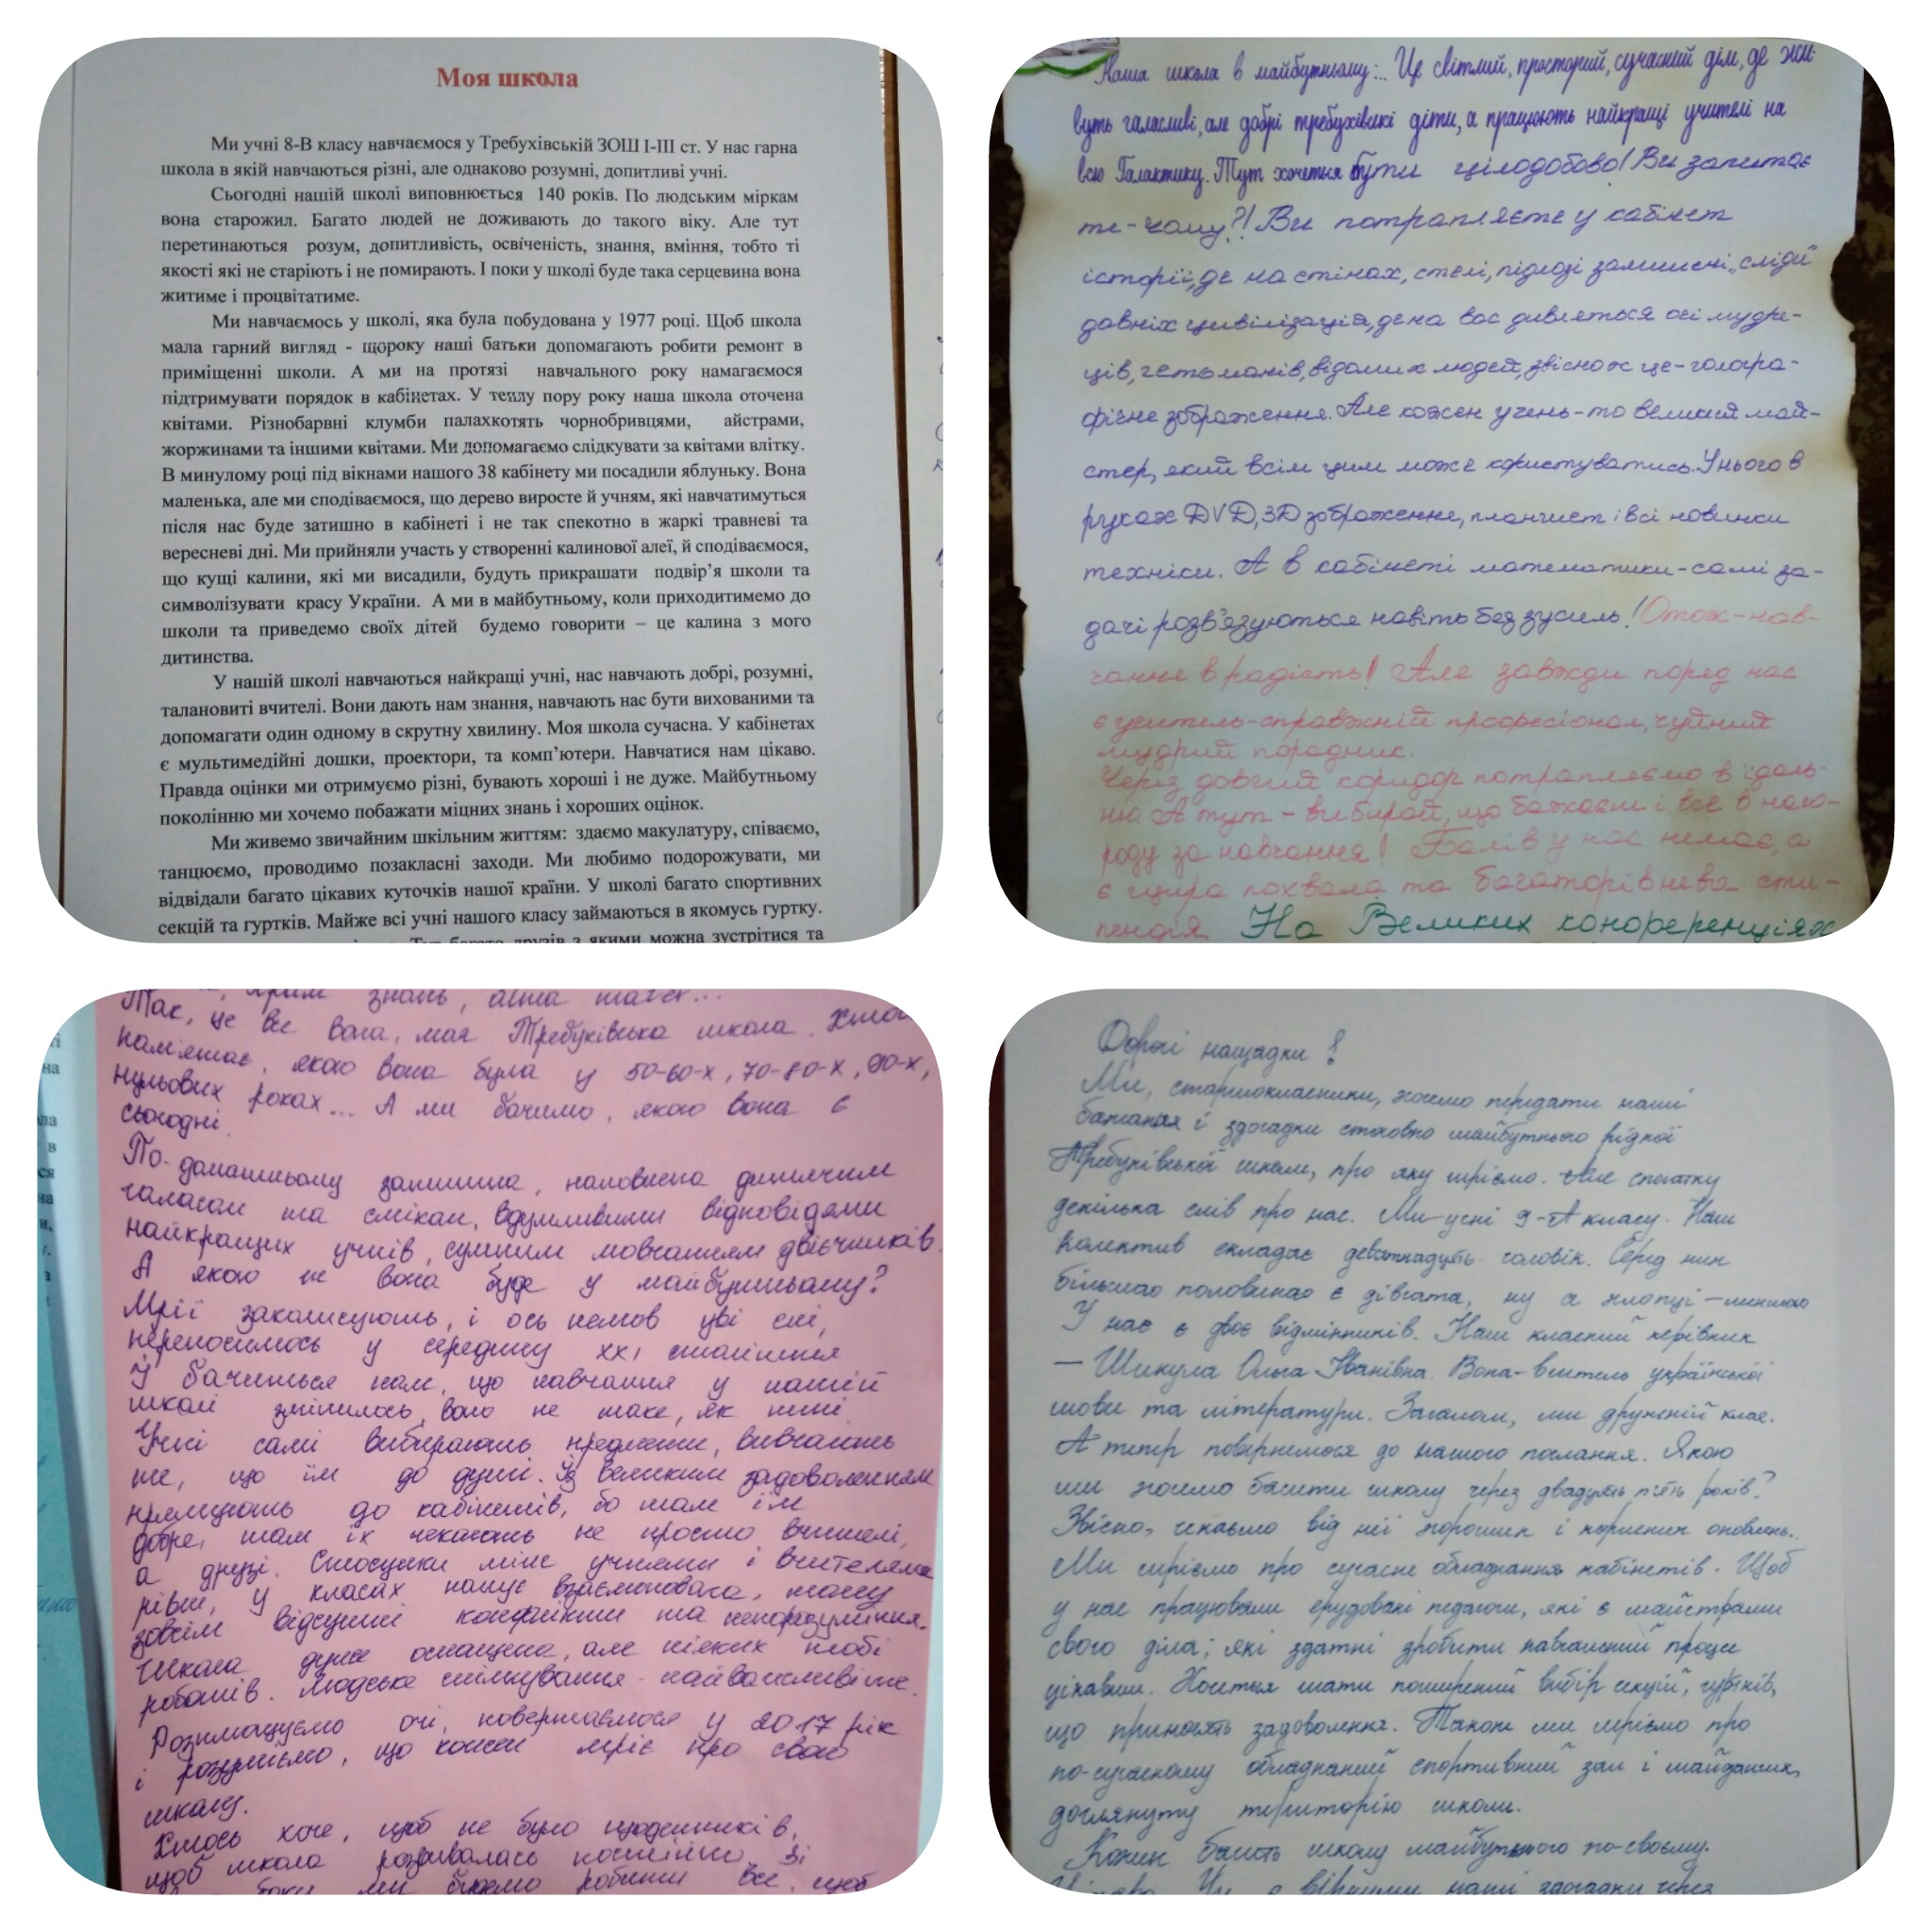 Моя школа
Ми учні 8-В класу навчаємося у Требухівській ЗОШ І-ІІІ ст. У нас гарна
школа в якій навчаються різні, але однаково розумні, допитливі учні.
Сьогодні нашій школі виповнюється 140 років. По людським міркам
вона старожил. Багато людей не доживають до такого віку. Але тут
перетинаються розум, допитливість, освіченість, знання, вміння, тобто ті
якості які не старіють і не помирають. І поки у школі буде така серцевина вона
житиме і процвітатиме.
Ми навчаємось у школі, яка була побудована у 1977 році. Щоб школа
мала гарний вигляд - щороку наші батьки допомагають робити ремонт в
приміщенні школи. А ми на протязі навчального року намагаємося
підтримувати порядок в кабінетах. У теплу пору року наша школа оточена
квітами. Різнобарвні клумби палахкотять чорнобривцями, айстрами,
жоржинами та іншими квітами. Ми допомагаємо слідкувати за квітами влітку.
В минулому році під вікнами нашого 38 кабінету ми посадили яблуньку. Вона
маленька, але ми сподіваємося, що дерево виросте й учням, які навчатимуться
після нас буде затишно в кабінеті і не так спекотно в жаркі травневі та
вересневі дні. Ми прийняли участь у створенні калинової алеї, й сподіваємося,
що кущі калини, які ми висадили, будуть прикрашати подвір’я школи та
символізувати красу України. А ми в майбутньому, коли приходитимемо до
школи та приведемо своїх дітей будемо говорити – це калина з мого
дитинства.
У нашій школі навчаються найкращі учні, нас навчають добрі, розумні,
талановиті вчителі. Вони дають нам знання, навчають нас бути вихованими та
допомагати один одному в скрутну хвилину. Моя школа сучасна. У кабінетах
є мультимедійні дошки, проектори, та комп’ютери. Навчатися нам цікаво.
Правда оцінки ми отримуємо різні, бувають хороші і не дуже. Майбутньому
поколінню ми хочемо побажати міцних знань і хороших оцінок.
Ми живемо звичайним шкільним життям: здаємо макулатуру, співаємо,
танцюємо, проводимо позакласні заходи. Ми любимо подорожувати, ми
відвідали багато цікавих куточків нашої країни. У школі багато спортивних
секцій та гуртків. Майже всі учні нашого класу займаються в якомусь гуртку.
Тут багато друзів з якими можна зустрітися та
Наша школа в майбутньому:... Це світлий, просторий, сучасний дім, де жи-
вуть галасливі, але добрі требухівські діти, а працюють найкращі учителі на
всю Галактику. Тут хочеться бути цілодобово! Ви запитає
те-чому?! Ви потрапляєте у кабінет
історії, де на стінах, стелі, підлозі залишені „сліди"
давніх цивілізацій, де на вас дивляться осі мудре-
ців, гетьманів, відомих людей, звісно ж це-гологра-
фічне зображення. Але кожен учень-то великий май-
стер, який всім цим може користуватись. У нього в
руках DVD, 3D зображення, планшет і всі новинки
техніки. А в кабінеті математики-самі за-
дачі розв'язуються навіть без зусиль! Отож-нав-
чання в радість! Але завжди поряд нас
є учитель-справжній професіонал, чуйний
мудрий порадник.
Через довгий коридор потрапляємо в їдаль-
ню. А тут - вибирай, що бажаєш і все в наго-
роду за навчання! Балів у нас немає, а
є щира похвала та багаторівнева сти-
пендія. На Великих конференціях
храм знань, alma mater...
Так, це все вона, моя Требухівська школа. Хтось
пам'ятає, якою вона була у 50-60-х, 70-80-х, 90-х,
нульових роках... А ми бачимо, якою вона є
сьогодні.
По-домашньому затишна, наповнена дитячим
галасом та сміхом, вдумливими відповідями
найкращих учнів, сумним мовчанням двієчників.
А якою ж вона буде у майбутньому?
Мрії заколисують, і ось немов уві сні,
переносимось у середину ХХІ століття
Й бачиться нам, що навчання у нашій
школі змінилось, воно не таке, як нині.
Учні самі вибирають предмети, вивчають
те, що їм до душі. Із великим задоволенням
прямують до кабінетів, бо там їм
добре, там їх чекають не просто вчителі,
а друзі. Стосунки між учнями і вчителями
рівні, у класах панує взаємоповага, тому
зовсім відсутні конфлікти та непорозуміння.
Школа дуже оснащена, але ніяких тобі
роботів. Людське спілкування - найважливіше.
Розплющуємо очі, повертаємося у 2017 рік
і розуміємо, що кожен мріє про свою
школу.
Хтось хоче, щоб не було щоденників,
щоб школа розвивалась постійно. Зі
боку ми будемо робити все, щоб
Дорогі нащадки!
Ми, старшокласники, хочемо передати наші
бажання і здогадки стосовно майбутнього рідної
Требухівської школи, про яку мріємо. Але спочатку
декілька слів про нас. Ми-учні 9-А класу. Наш
колектив складає дев'ятнадцять чоловік. Серед них
більшою половиною є дівчата, ну а хлопці - меншою
У нас є двоє відмінників. Наш класний керівник
— Шикула Ольга Іванівна. Вона-вчитель української
мови та літератури. Загалом, ми дружній клас.
А тепер повернемося до нашого послання. Якою
ми хочемо бачити школу через двадцять п'ять років?
Звісно, чекаємо від неї хороших і корисних оновлень.
Ми мріємо про сучасне обладнання кабінетів. Щоб
у нас працювали ерудовані педагоги, які є майстрами
свого діла; які здатні зробити навчальний процес
цікавим. Хочеться мати поширений вибір секцій, гуртків,
що приносять задоволення. Також ми мріємо про
по-сучасному обладнаний спортивний зал і майданчик,
доглянуту територію школи.
Кожен бачить школу майбутнього по-своєму.
наші здогадки через